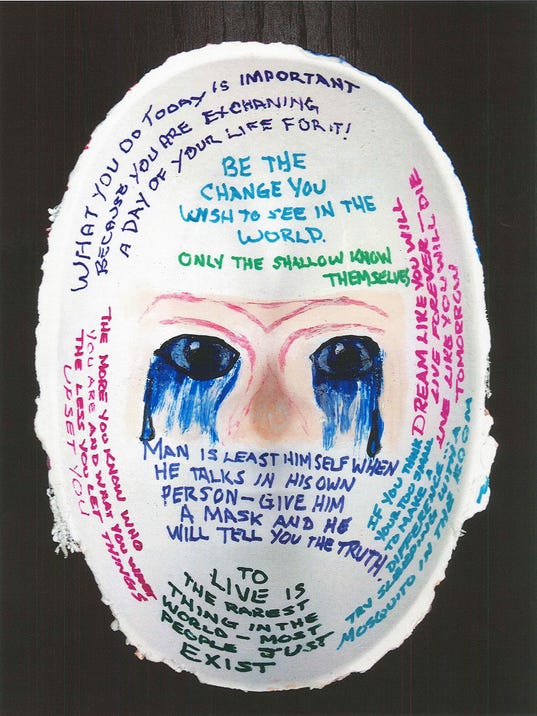 WHAT YOU DO TODAY IS IMPORTANT
BECAUSE YOU ARE EXCHANING
A DAY OF YOUR LIFE FOR IT!
BE THE
CHANGE YOU
WISH TO SEE IN THE
WORLD.
ONLY THE SHALLOW KNOW
THEMSELVES
DREAM LIKE YOU WILL
LIVE FOREVER - DIE
LIKE YOU WILL
TOMORROW
THE MORE YOU KNOW WHO
YOU ARE AND WHAT YOU
THE LESS YOU LET THINGS
UPSET YOU
MAN IS LEAST HIMSELF WHEN
HE TALKS IN HIS OWN
PERSON - GIVE HIM
A MASK AND HE
WILL TELL YOU THE TRUTH
IF YOU THINK
YOUR TOO SMALL
TO MAKE A
DIFFERENCE
TRY SLEEPING WITH A
MOSQUITO IN THE ROOM
TO
LIVE IS
THE RAREST
THING IN THE
WORLD - MOST
PEOPLE JUST
EXIST